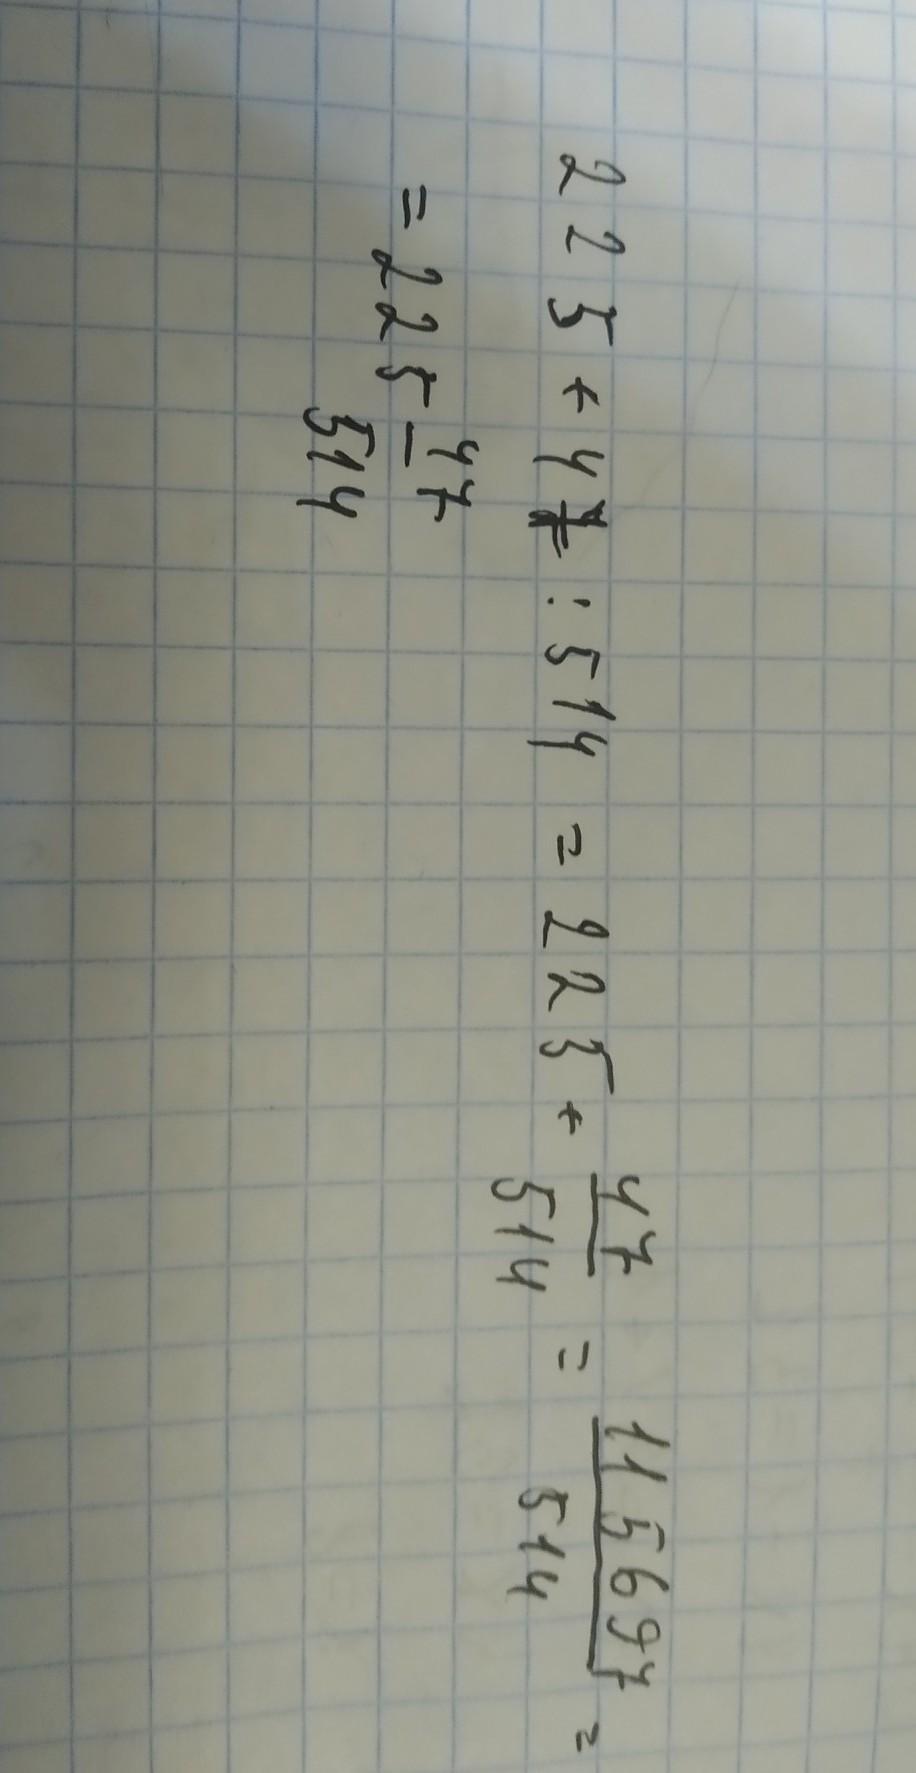 225 + 47 : 514 = 225 + 47/514 = 115697/514 =
= 225 47/514